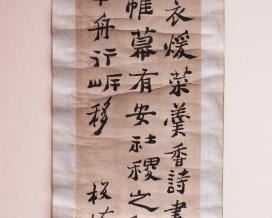 衣煖菜羹香詩書
帷幕有安社稷之
舟行岍移
板